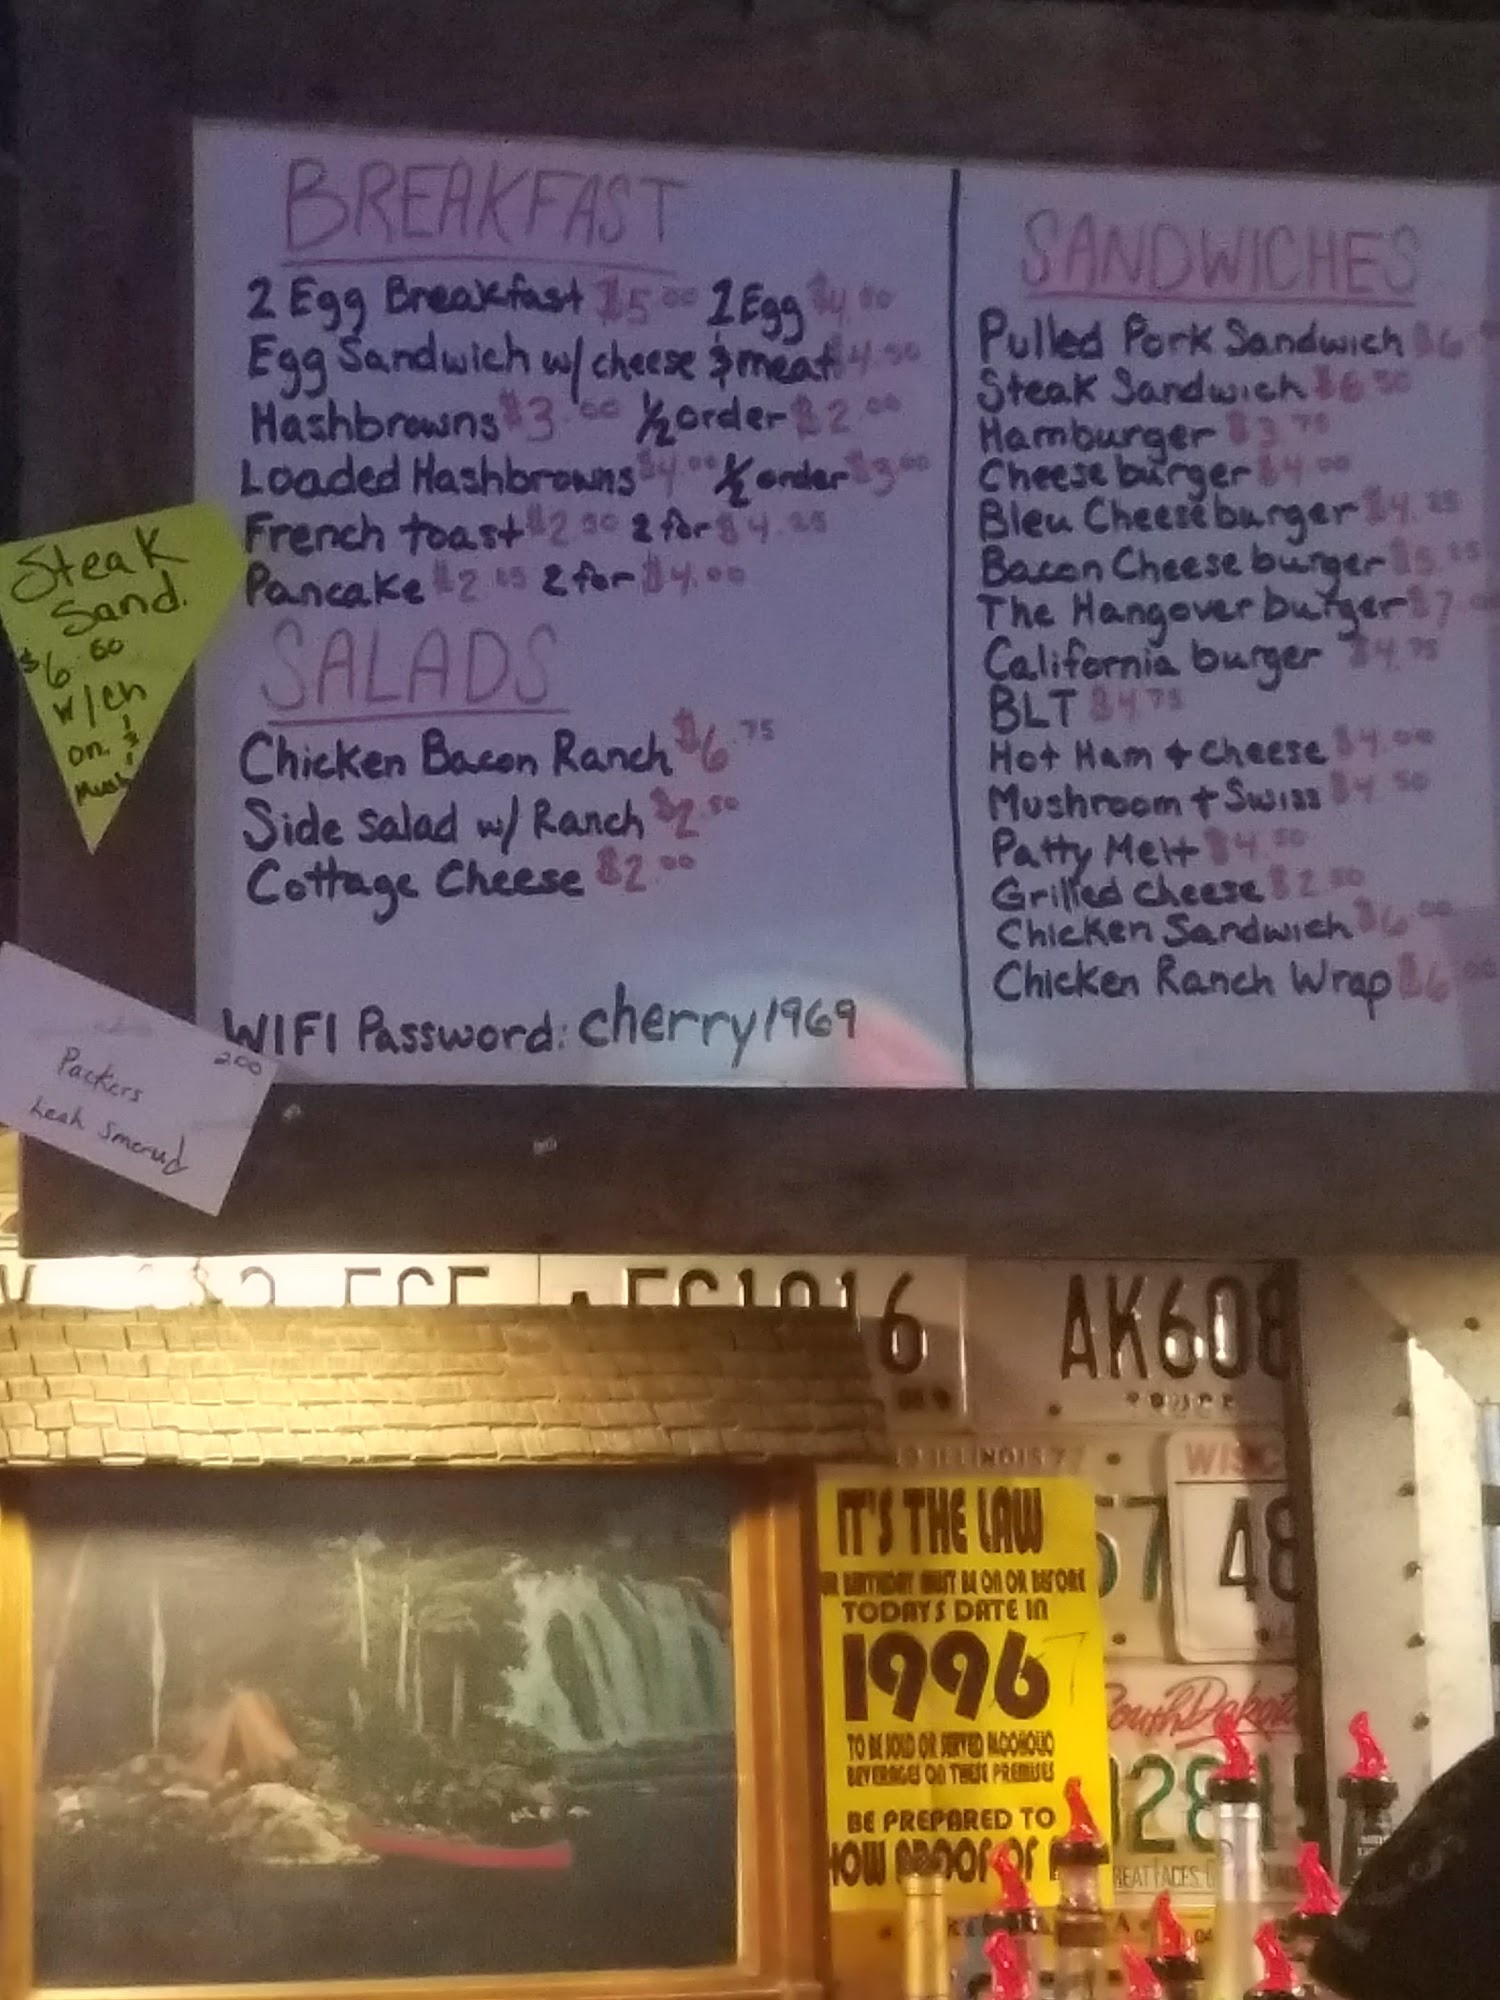 BREAKFAST
2 Egg Breakfast $5.00 1 Egg $4.50
Egg Sandwich w/ cheese & meat $4.50
Hashbrowns $3.00 1/2 order $2.00
Loaded Hashbrowns $4.00 1/2 order $3.00
French toast $2.50 2 for $4.25
Pancake $2.25 2 for $4.00
SALADS
Chicken Bacon Ranch $6.75
Side Salad w/ Ranch $2.50
Cottage Cheese $2.00
WIFI Password: cherry1969
SANDWICHES
Pulled Pork Sandwich $6
Steak Sandwich $6.50
Hamburger $3.75
Cheeseburger $4.00
Bleu Cheeseburger $4.25
Bacon Cheeseburger $5.25
The Hangover burger $7
California burger $4.75
BLT $4.75
Hot Ham + Cheese $4.00
Mushroom + Swiss $4.50
Patty Melt $4.50
Grilled Cheese $2.50
Chicken Sandwich $6.00
Chicken Ranch Wrap $6.00
Steak
Sand.
$6.50
w/ch
on. &
Mush
200
Packers
Leah
6
AK608
ILLINOIS 77
WISC
57
48
South Dakota
IT'S THE LAW
BIRTHDAY MUST BE ON OR BEFORE
TODAYS DATE IN
1996 7
TO BE SOLD OR SERVED ALCOHOLIC
BEVERAGES ON THESE PREMISES
BE PREPARED TO
HOW PROOF OF